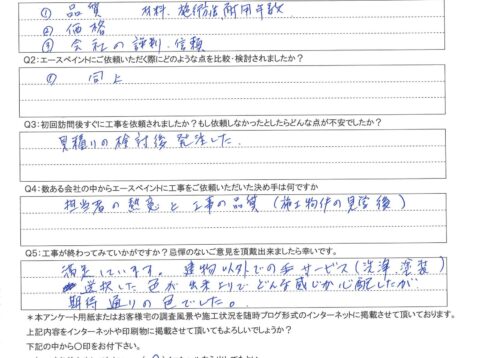 ① 品質　材料、施行方法、耐用年数
② 価格
③ 会社の評判、信頼
Q2：エースペイントにご依頼いただく際にどのような点を比較・検討されましたか？
① 同上
Q3：初回訪問後すぐに工事を依頼されましたか？もし依頼しなかったとしたらどんな点が不安でしたか？
見積りの検討後発注した。
Q4：数ある会社の中からエースペイントに工事をご依頼いただいた決め手は何ですか
担当者の熱意と工事の品質（施工物件の見学後）
Q5：工事が終わってみていかがですか？忌憚のないご意見を頂戴出来ましたら幸いです。
満足しています。建物以外でのサービス（洗浄、塗装）
選択した色が出来上りでどんな感じか心配したが
期待通りの色でした。
＊本アンケート用紙またはお客様宅の調査風景や施工状況を随時ブログ形式のインターネットに掲載させて頂いております。
上記内容をインターネットや印刷物に掲載させて頂いてもよろしいでしょうか？
下記の中から〇印をお付け下さい。